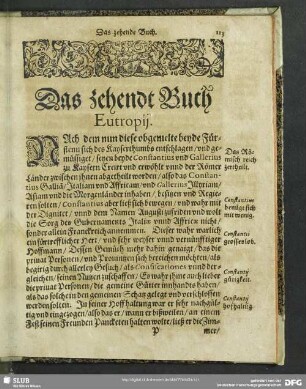 Das zehende Buch. 113
Das zehendt Buch
Eutropij.
NAch dem nun diese obgemelte beyde Für-
stenn sich des Kayserthumbs entschlagen / und ge-
müssiget / seyen beyde Constantius und Gallerius
zu Kaysern Creirt und erwöhlt / unnd der Römer
Länder zwischen ihnen abgetheilt worden / also das Constan-
tius Galliā / Italiam und Affricam / und Gallerius Illyriam /
Asiam und die Morgenländer inhaben / besitzen und Regie-
ren solten / Constantius aber ließ sich benügen / und wahr mit
der Dignitet / unnd dem Namen Augusti zufriden und wolt
die Sorg des Gubernaments Italiæ und Affricæ nicht /
sonder allein Franckreich annemmen. Dieser wahr warlich
ein fürtrefflicher Herr / und sehr weiser und vernünfftiger
Hoffmann / Dessen Gemüth mehr dahin genaigt / das die
privat Personen / und Provintzen sich bereichen möchten / als
begirig durch allerley Gesuch / als Confiscationes unnd der-
gleichen / seinen Nutzen zuschaffen / Er wahr ihme auch lieber
die privat Personen / die gemeine Güter innhandts haben /
als das solche in den gemeinen Schatz gelegt und verschlossen
werden solten. In seiner Hoffhaltung war er sehr nachgültig
und eingezogen / also das er / wann er bißweilen / an einem
Fest seinen Freunden Pancketen halten wolte / ließ er die Zim-
P mer /
Das Rö-
misch reich
zertheilt.
Constantius
benügt sich
mit wenig.
Constantij
grosses lob.
Constantij
gütigkeit.
Constantij
hoffhaltung.
SLUB
Wir führen Wissen.